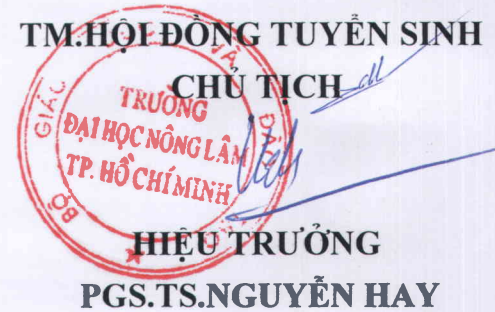 TM.HỘI ĐỒNG TUYỂN SINH
CHỦ TỊCH
BỘ GIÁO DỤC VÀ ĐÀO TẠO
TRƯỜNG
ĐẠI HỌC NÔNG LÂM
TP. HỒ CHÍ MINH
HIỆU TRƯỞNG
PGS.TS.NGUYỄN HAY